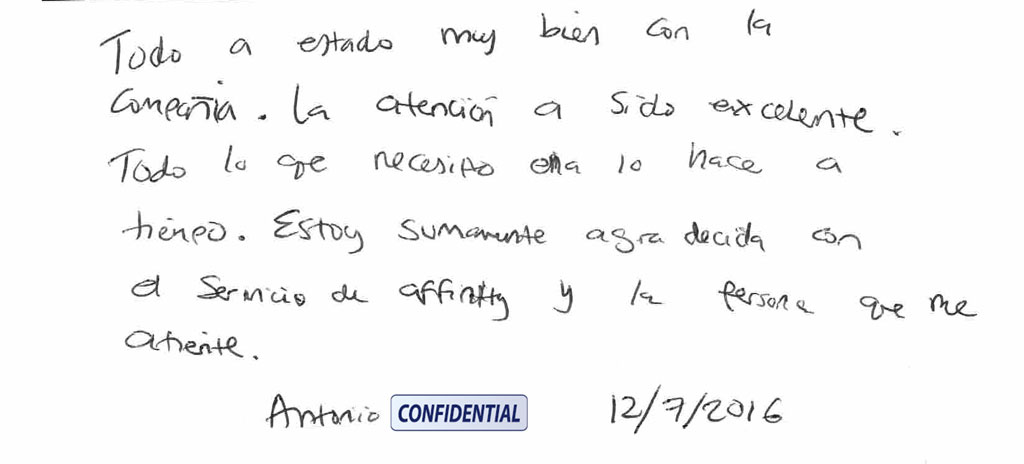 Todo a estado muy bien con la
Compañia. la atención a sido excelente.
Todo lo que necesito ella lo hace a
tienpo. Estoy sumamente agradecida con
el Servicio de affinitty y la persona que me
atiente.
Antonio CONFIDENTIAL 12/7/2016